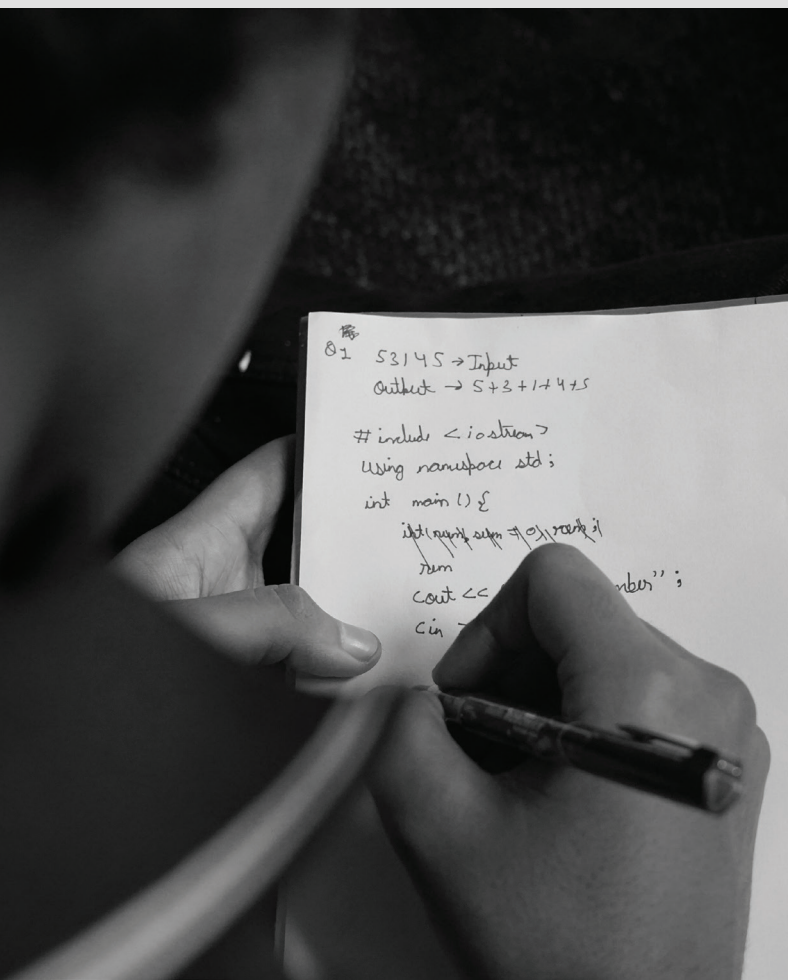 Q1 53145 → Input
Output → 5+3+1+4+5
# include <iostream>
using namespace std;
int main () {
rem
cout << mber";
cin